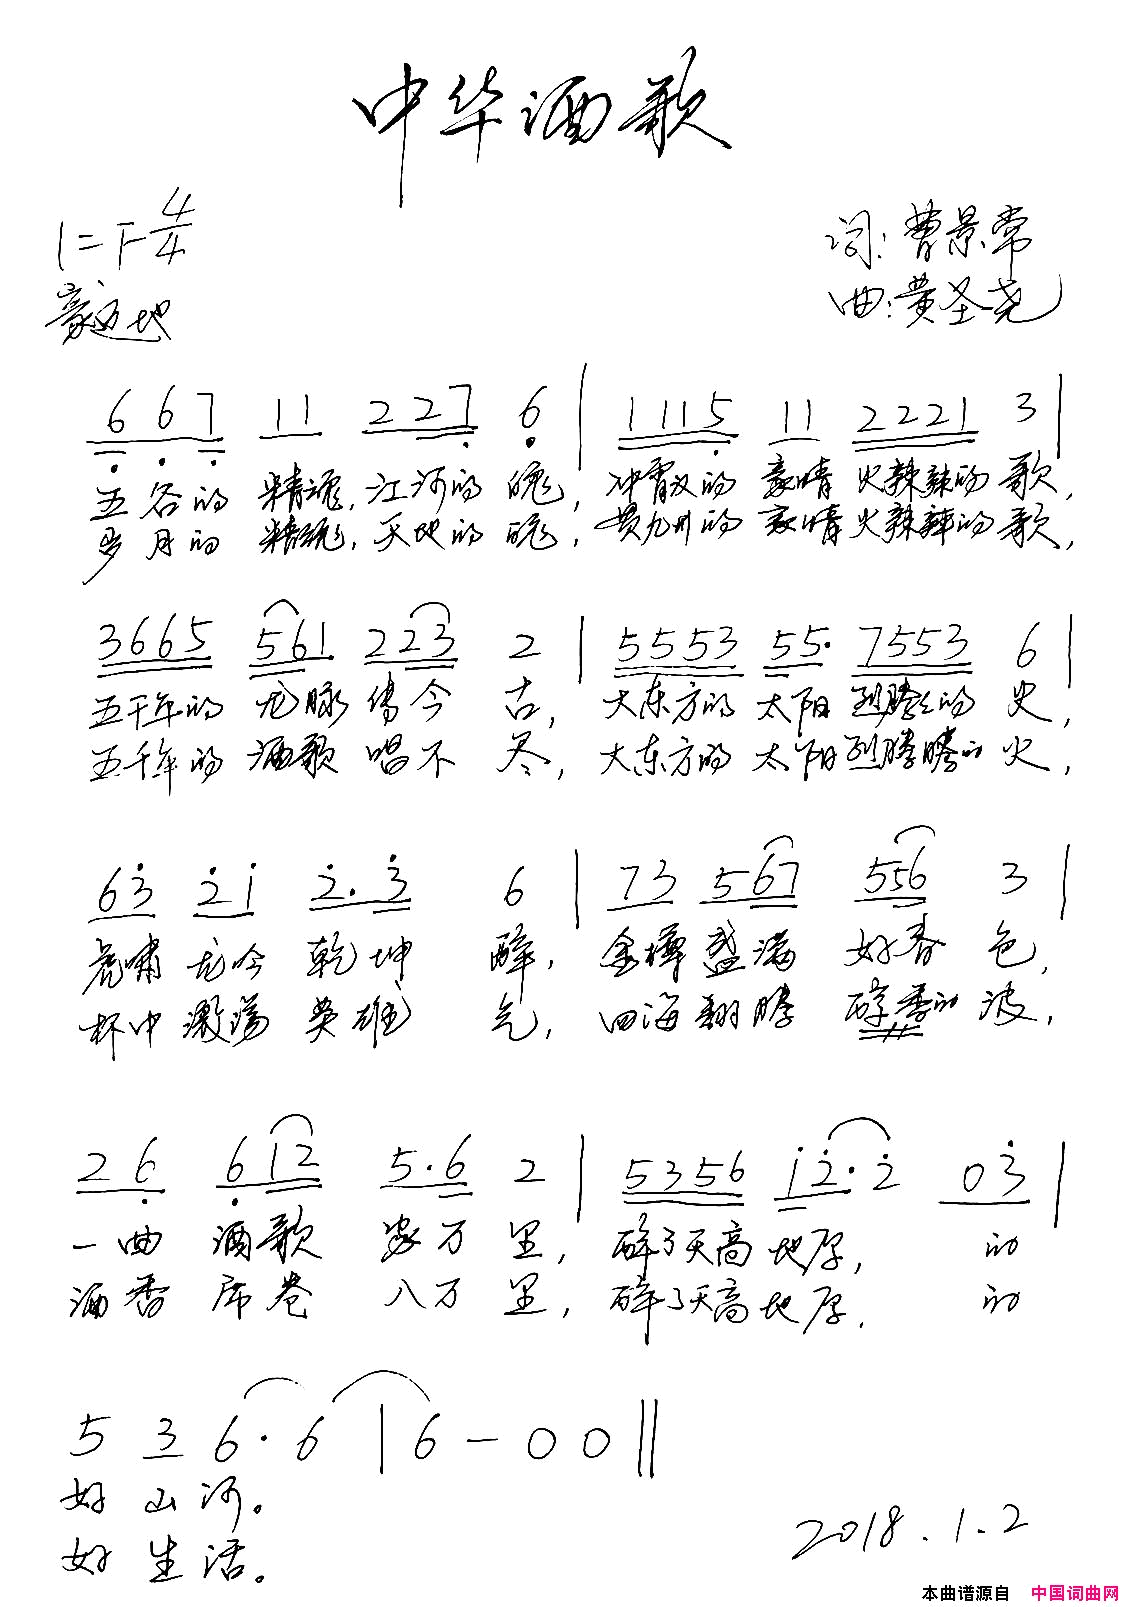 中华酒歌
1=F 4/4
豪迈地
词:曹景常
曲:黄圣尧
6 6 7 11 2 2 7 6 | 1 1 1 5 11 2 2 2 1 3 |
五谷的 精魂,江河的 魄,冲霄汉的 豪情 火辣辣的 歌,
岁月的 精魂,天地的 魄,贯九州的 豪情 火辣辣的 歌,
3 6 6 5 5 6 1 2 2 3 2 | 5 5 5 3 5 5· 7 5 5 3 6 |
五千年的 龙脉 传今 古,大东方的 太阳 烈腾腾的 史,
五千年的 酒歌 唱不 尽,大东方的 太阳 烈腾腾的 火,
6 3 2 1 2· 3 6 | 7 3 5 6 7 5 5 6 3 |
虎啸 龙吟 乾坤 醉,金樽 盛满 好春 色,
杯中 激荡 英雄 气,四海 翻腾 醇香的 波,
2 6 6 1 2 5·6 2 | 5 3 5 6 1 2· 2 0 3 |
一曲 酒歌 家万 里,醉了天高 地厚, 的
酒香 席卷 八万 里,醉了天高 地厚, 的
5 3 6·6 | 6 - 0 0 ‖
好山河。
好生活。
2018.1.2
本曲谱源自 中国词曲网